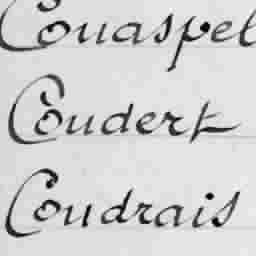 Couaspel
Coudert
Coudrais